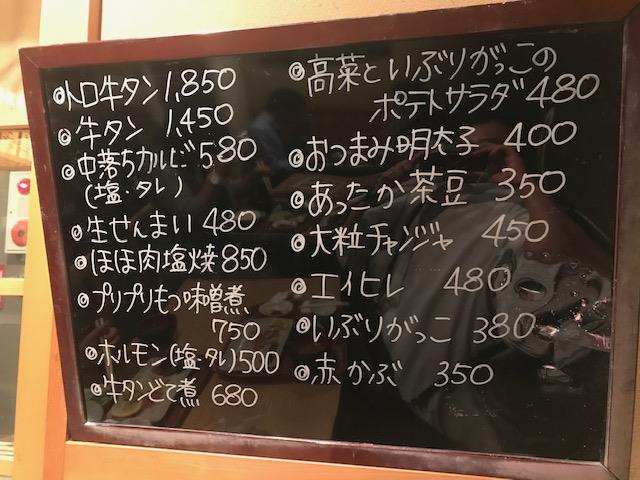 ◎トロ牛タン 1,850
◎牛タン 1,450
◎中落ちカルビ 580
(塩・タレ)
◎生せんまい 480
◎ほほ肉塩焼 850
◎プリプリもつ味噌煮
750
◎ホルモン(塩・タレ)500
◎牛タンどて煮 680
◎高菜といぶりがっこの
ポテトサラダ 480
◎おつまみ明太子 400
◎あったか茶豆 350
◎大粒チャンジャ 450
◎エイヒレ 480
◎いぶりがっこ 380
◎赤かぶ 350